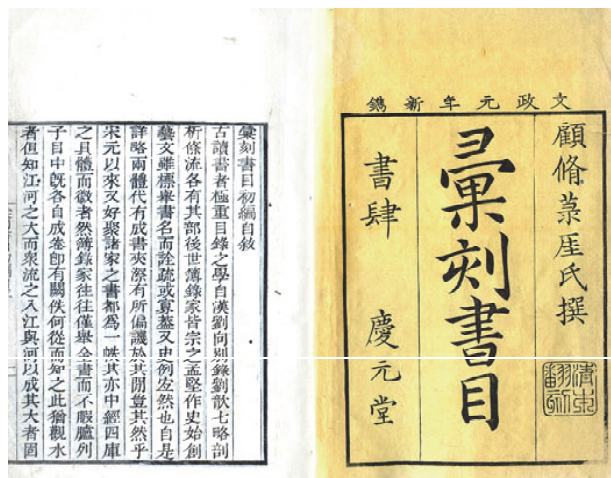 文政元年新鐫
顧脩菉厓氏撰
彙刻書目
書肆 慶元堂
彙刻書目初編自敘
古讀書者極重目錄之學自漢劉向別錄劉歆七略剖
析條流各有其部後世簿錄家皆宗之孟堅作史始創
藝文雖標舉書名而詮疏或寡蓋又史例宜然也自是
詳略兩體代有成書夾漈有所偏議於其閒豈其然乎
宋元以來又好聚諸家之書都爲一帙其亦中經四庫
之具體而微者然簿錄家往往僅舉全書而不暇臚列
子目中旣各自成卷卽有闕佚何從而知之此猶觀水
者但知江河之大而衆流之入江與河以成其大者固